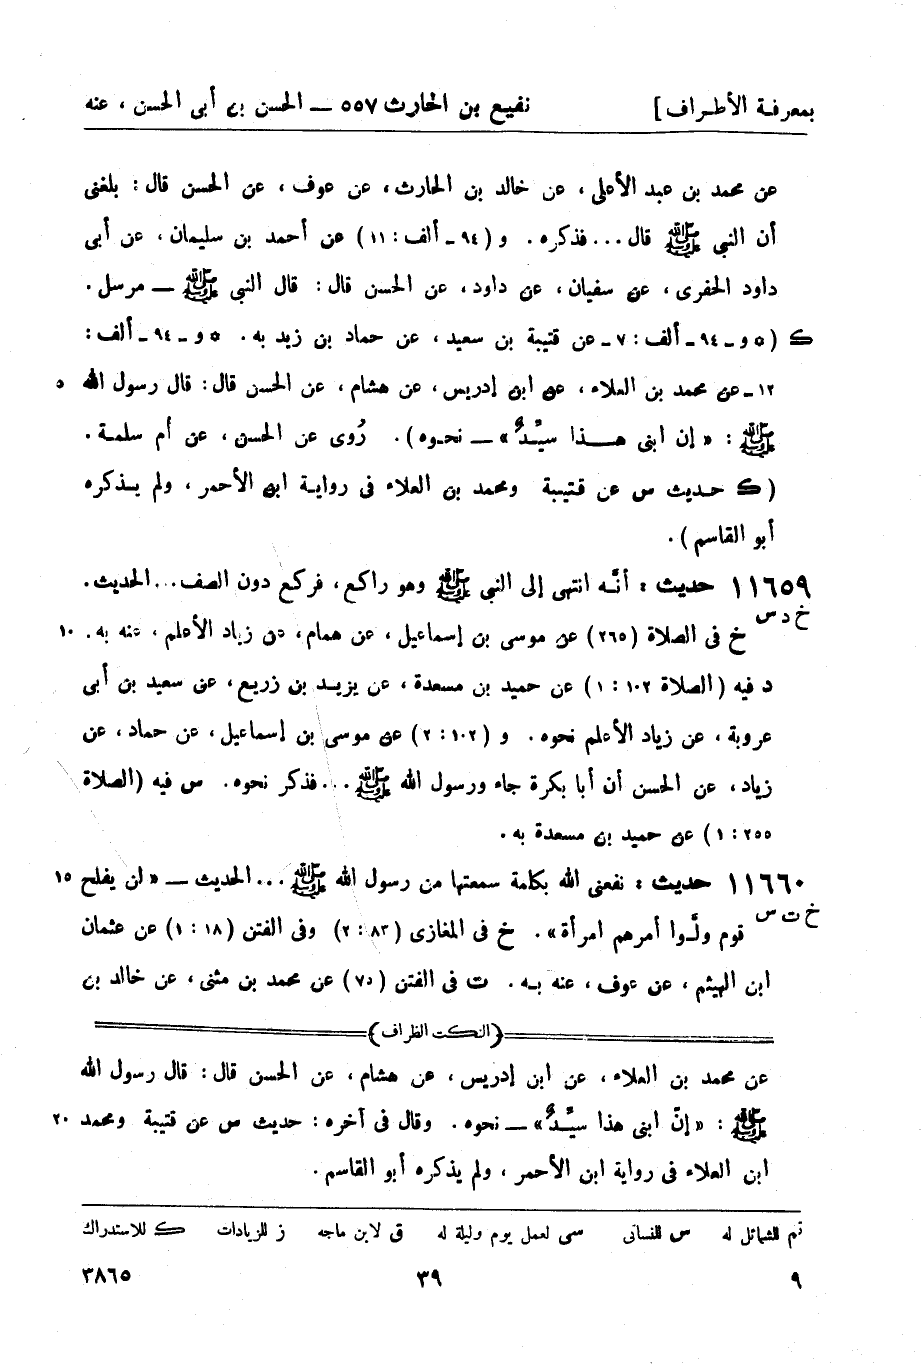 بمعرفة الأطراف] نفيع بن الحارث ٥٥٧ — الحسن بن أبى الحسن ، عنه
عن محمد بن عبد الأعلى، عن خالد بن الحارث، عن عوف، عن الحسن قال: بلغنى
أن النبى ﷺ قال... فذكره. و (٩٤ ـ ألف: ١١) عن أحمد بن سليمان، عن أبى
داود الحفرى، عن سفيان، عن داود، عن الحسن قال: قال النبى ﷺ — مرسل.
ك (* و ـ ٩٤ ـ ألف: ٧ ـ عن قتيبة بن سعيد، عن حماد بن زيد به. * و ـ ٩٤ ـ ألف:
١٢ ـ عن محمد بن العلاء، عن ابن إدريس، عن هشام، عن الحسن قال: قال رسول الله ٥
ﷺ: «إن ابنى هـذا سيِّدٌ» — نحوه). رُوى عن الحسن، عن أم سلمة.
(ك حديث س عن قتيبة ومحمد بن العلاء فى رواية ابن الأحمر، ولم يذكره
أبو القاسم).
١١٦٥٩ حديث: أنَّه انتهى إلى النبى ﷺ وهو راكع، فركع دون الصف... الحديث.
خ د س
خ فى الصلاة (٢٦٥) عن موسى بن إسماعيل، عن همام، عن زياد الأعلم، عنه به. ١٠
د فيه (الصلاة ١٠٢: ١) عن حميد بن مسعدة، عن يزيد بن زريع، عن سعيد بن أبى
عروبة، عن زياد الأعلم نحوه. و (١٠٢: ٢) عن موسى بن إسماعيل، عن حماد، عن
زياد، عن الحسن أن أبا بكرة جاء ورسول الله ﷺ... فذكر نحوه. س فيه (الصلاة
٢٥٥: ١) عن حميد بن مسعدة به.
١١٦٦٠ حديث: نفعنى الله بكلمة سمعتها من رسول الله ﷺ... الحديث — «لن يفلح ١٥
خ ت س
قوم ولَّوا أمرهم امرأة». خ فى المغازى (٨٣: ٢) وفى الفتن (١٨: ١) عن عثمان
ابن الهيثم، عن عوف، عنه به. ت فى الفتن (٧٥) عن محمد بن مثنى، عن خالد بن
(النكت الظراف)
عن محمد بن العلاء، عن ابن إدريس، عن هشام، عن الحسن قال: قال رسول الله
ﷺ: «إنّ ابنى هذا سيِّدٌ» — نحوه. وقال فى آخره: حديث س عن قتيبة ومحمد ٢٠
ابن العلاء فى رواية ابن الأحمر، ولم يذكره أبو القاسم.
تم للشمائل له س للنسائى سى لعمل يوم وليلة له ق لابن ماجه ز للزيادات ك للاستدراك
٩ ٣٩ ٣٨٦٥